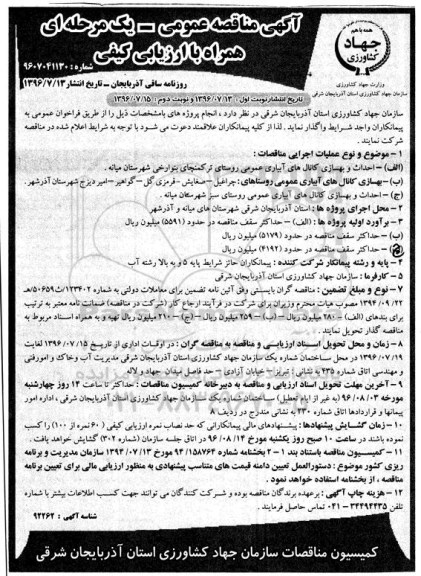 همه با هم
جهاد
کشاورزی
وزارت جهاد کشاورزی
سازمان جهاد کشاورزی استان آذربایجان شرقی
آگهی مناقصه عمومی – یک مرحله ای
همراه با ارزیابی کیفی
شماره : ۹۶۰۷۰۴۱۱۳۰
روزنامه ساقی آذربایجان – تاریخ انتشار ۱۳۹۶/۷/۱۳
تاریخ انتشار نوبت اول : ۱۳۹۶/۰۷/۱۳ و نوبت دوم : ۱۳۹۶/۰۷/۱۵
سازمان جهاد کشاورزی استان آذربایجان شرقی در نظر دارد ، انجام پروژه های بامشخصات ذیل را از طریق فراخوان عمومی به
پیمانکاران واجد شرایط واگذار نماید . لذا از کلیه پیمانکاران علاقمند، دعوت می شود با توجه به شرایط اعلام شده در مناقصه
شرکت نمایند .
۱ – موضوع و نوع عملیات اجرایی مناقصات :
(الف) – احداث و بهسازی کانال های آبیاری عمومی روستای ترکمنچای بنوارخی شهرستان میانه .
(ب) – بهسازی کانال های آبیاری عمومی روستاهای: چراغیل – صفایش – قرمزی گل – گواهیر – امیر دیزج شهرستان آذرشهر .
(ج) – احداث و بهسازی کانال های آبیاری عمومی روستای سبز شهرستان میانه .
۲ – محل اجرای پروژه ها : استان آذربایجان شرقی شهرستان های میانه و آذرشهر
۳ – برآورد اولیه پروژه ها : (الف) – حداکثر سقف مناقصه در حدود (۵۵۹۱) میلیون ریال
(ب) – حداکثر سقف مناقصه در حدود (۵۱۷۹) میلیون ریال
(ج) – حداکثر سقف مناقصه در حدود (۴۱۹۲) میلیون ریال
۴ – پایه و رشته پیمانکار شرکت کننده : پیمانکاران حائز شرایط پایه ۵ و به بالا رشته آب
۵ – کارفرما : سازمان جهاد کشاورزی استان آذربایجان شرقی
۷ – نوع و مبلغ تضمین : مناقصه گران بایستی وفق آئین نامه تضمین برای معاملات دولتی به شماره ۱۲۳۴۰۲/ت۵۰۶۵۹هـ
۱۳۹۴/۰۹/۲۲ مصوب هیات محترم وزیران برای شرکت در فرآیند ارجاع کار (شرکت در مناقصه) ضمانت نامه معتبر به ترتیب
برای بندهای (الف) – ۲۸۰ میلیون ریال – (ب) – ۲۵۹ میلیون ریال – (ج) – ۲۱۰ میلیون ریال تهیه و به همراه اسناد مربوط به
مناقصه گذار تحویل نمایند .
۸ – زمان و محل تحویل اسناد ارزیابی و مناقصه به مناقصه گران : در اوقات اداری از تاریخ ۱۳۹۶/۰۷/۱۵ لغایت
۱۳۹۶/۰۷/۱۹ در محل ساختمان شماره یک سازمان جهاد کشاورزی استان آذربایجان شرقی مدیریت آب وخاک و امورفنی
و مهندسی اتاق شماره ۴۳۵ به نشانی : تبریز – خیابان آزادی – حد فاصل میدان جهاد و لاله
۹ – آخرین مهلت تحویل اسناد ارزیابی و مناقصه به دبیرخانه کمیسیون مناقصات : حداکثر تا ساعت ۱۴ روز چهارشنبه
مورخه ۹۶/۰۸/۰۳ (به غیر از ایام تعطیل) ساختمان شماره یک سازمان جهاد کشاورزی استان آذربایجان شرقی ، اداره امور
پیمانها و قراردادها اتاق شماره ۲۳۰ به نشانی مندرج در ردیف ۸
۱۰ – زمان گشایش پیشنهادها : پیشنهادهای مالی پیمانکارانی که حد نصاب نمره ارزیابی کیفی (۶۰ نمره از ۱۰۰) را کسب
نموده باشند در ساعت ۱۰ صبح روز یکشنبه مورخ ۹۶/۰۸/۱۴ در اتاق جلسه سازمان (شماره ۳۰۲) گشایش خواهد یافت .
۱۱ – کمیسیون مناقصه باستناد بند ۱ – ۲ بخشنامه شماره ۹۴/۱۵۸۷۶۴ مورخ ۱۳۹۴/۰۷/۱۳ سازمان مدیریت و برنامه
ریزی کشور موضوع : دستورالعمل تعیین دامنه قیمت های متناسب پیشنهادی به منظور ارزیابی مالی برای تعیین برنامه
مناقصه ، از بخشنامه استفاده خواهد نمود .
۱۲ – هزینه چاپ آگهی : برعهده برندگان مناقصه بوده و شرکت کنندگان می توانند جهت کسب اطلاعات بیشتر با شماره
تلفن ۳۴۴۹۴۴۳۵ – ۰۴۱ تماس حاصل فرمایند .
شناسه آگهی : ۹۲۲۶۲
کمیسیون مناقصات سازمان جهاد کشاورزی استان آذربایجان شرقی